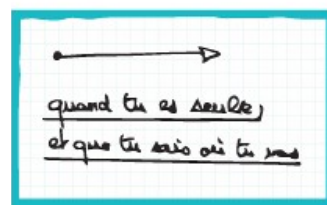 quand tu es seule,
et que tu sais où tu vas